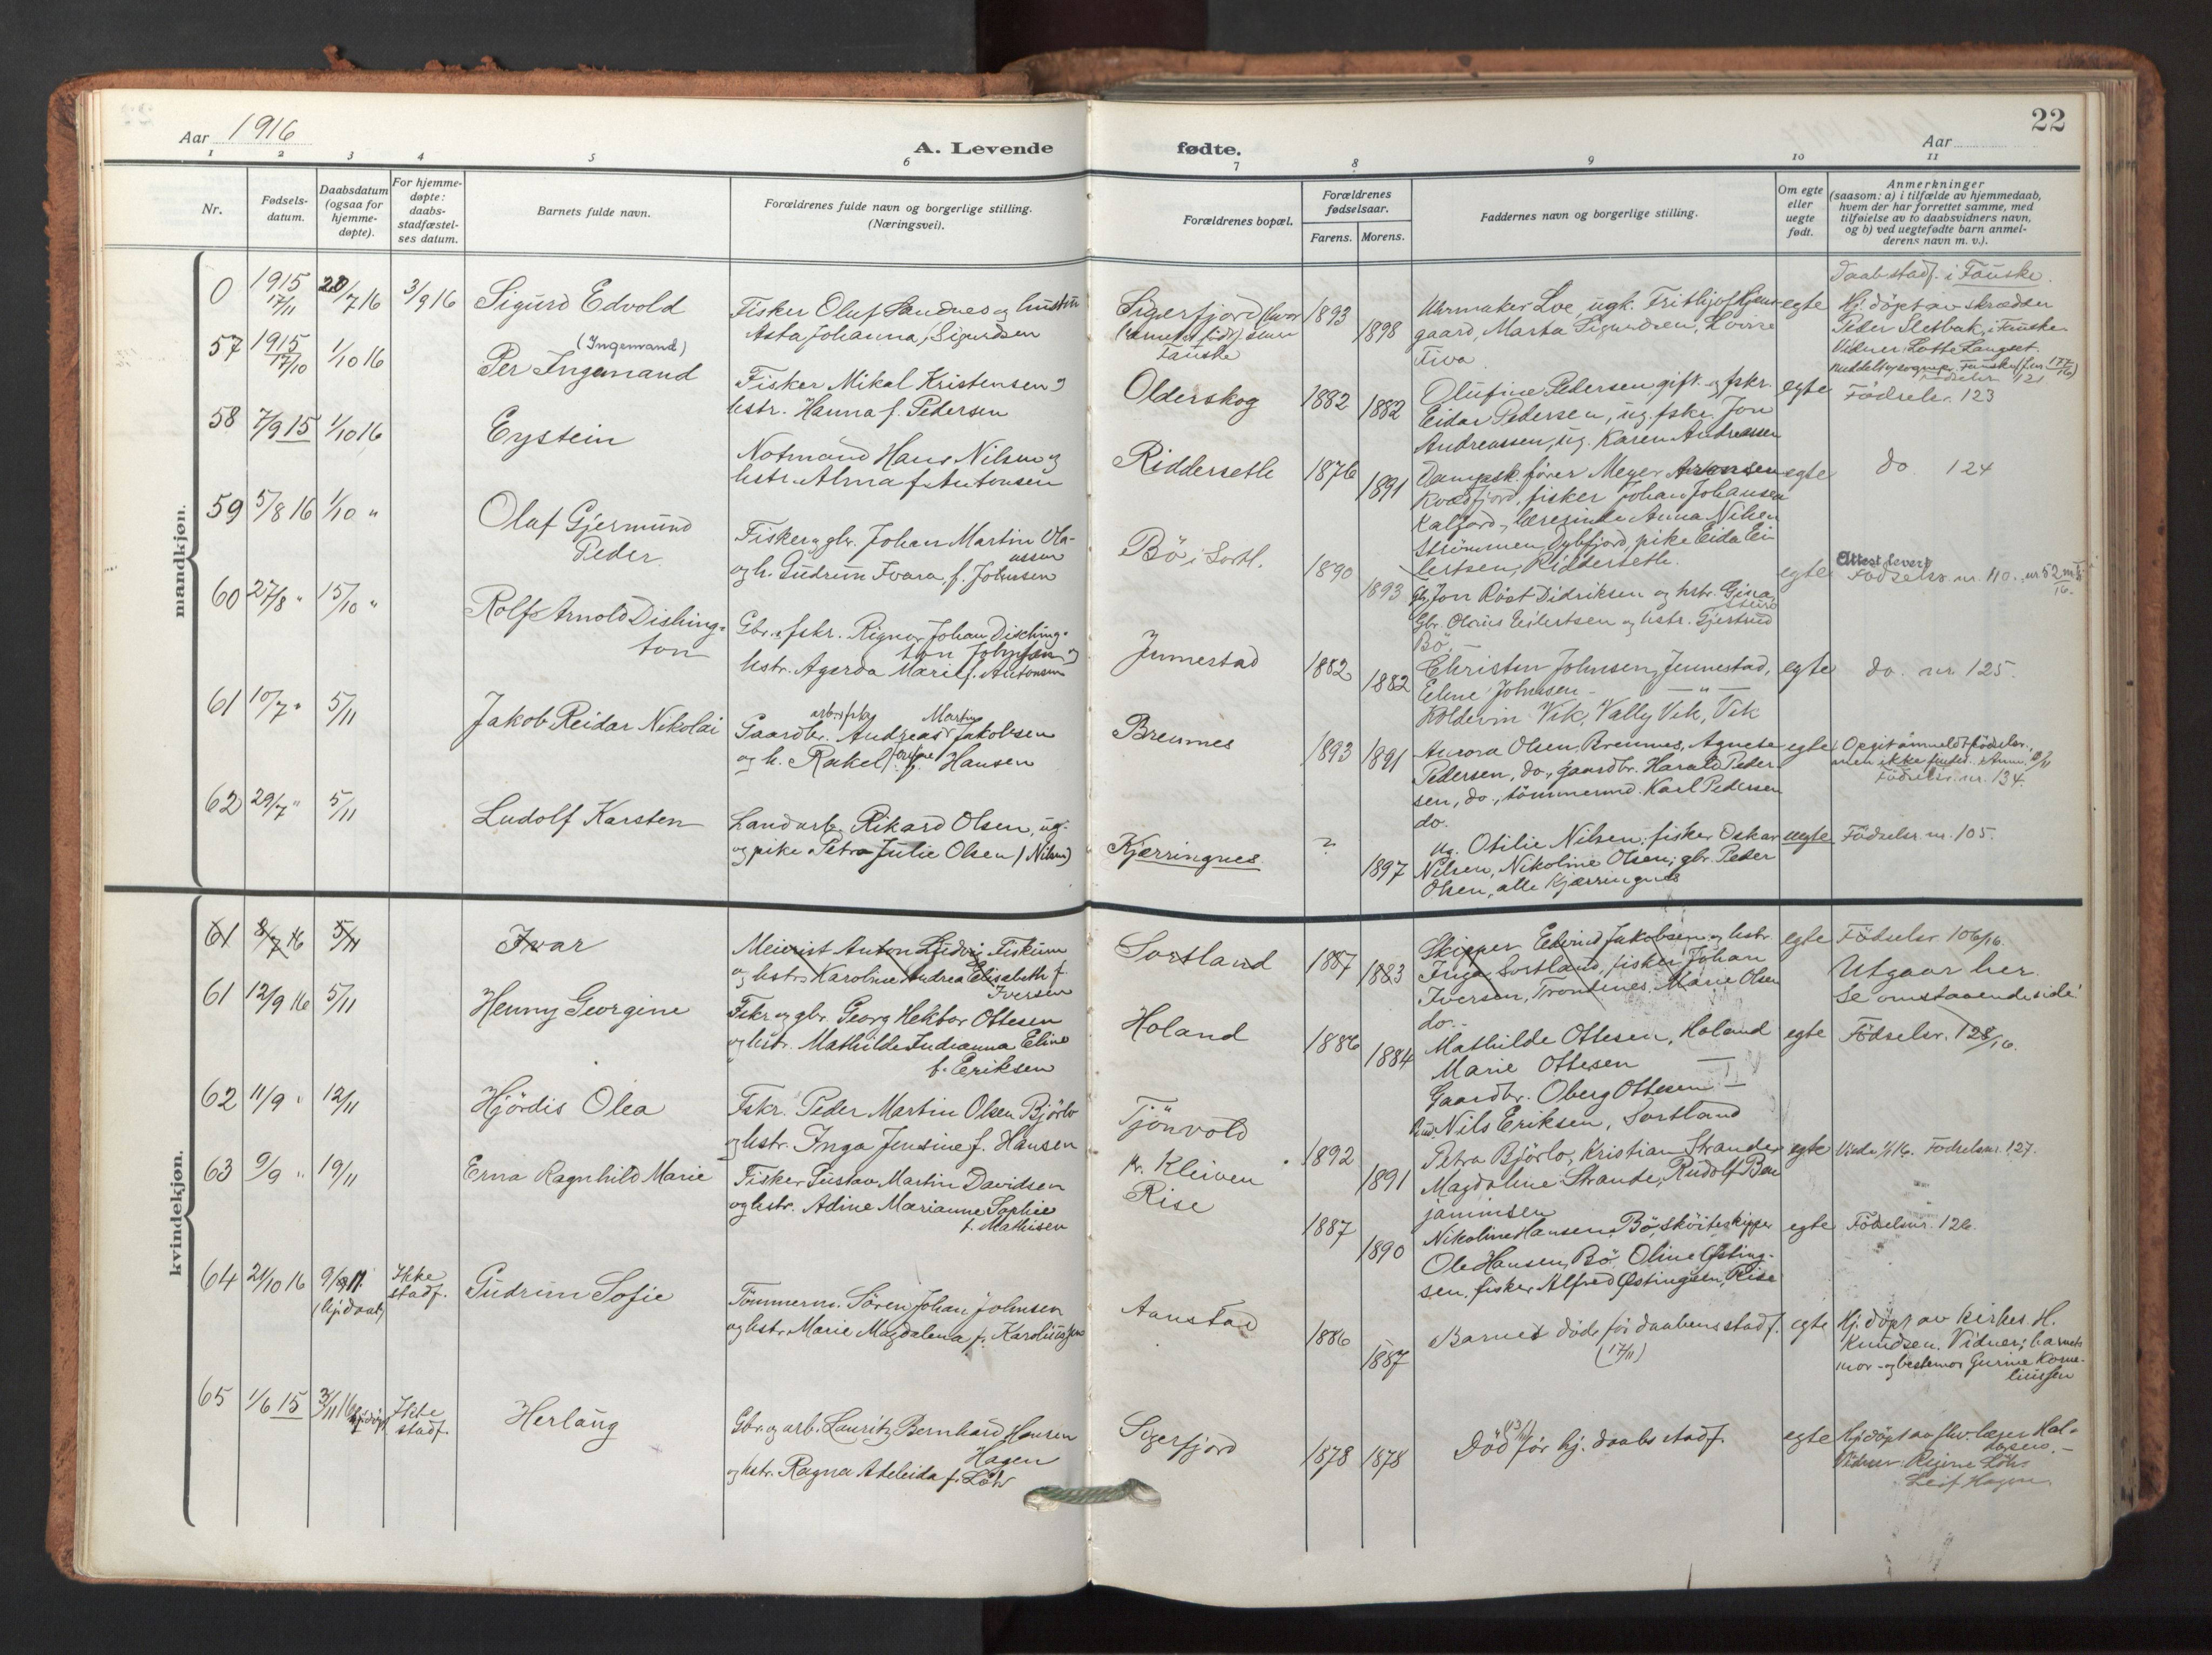 22
Aar 1916
A. Levende fødte.
Aar
1 2 3 4 5 6 7 8 9 10 11
Nr.
Fødsels-
datum.
Daabsdatum
(ogsaa for
hjemme-
døpte).
For hjemme-
døpte:
daabs-
stadfæstel-
ses datum.
Barnets fulde navn.
Forældrenes fulde navn og borgerlige stilling.
(Næringsvei).
Forældrenes bopæl.
Forældrenes
fødselsaar.
Farens. Morens.
Faddernes navn og borgerlige stilling.
Om egte
eller
uegte
født.
Anmerkninger
(saasom: a) i tilfælde av hjemmedaab,
hvem der har forrettet samme, med
tilføielse av to daabsvidners navn,
og b) ved uegtefødte barn anmel-
derens navn m. v.).
mandkjøn.
0
1915
17/11
28/7 16
3/9 16
Sigurd Edvold
Fisker Oluf Sandnes og hustru
Asta Johanna, Sigurdsen
Sigerfjord (hvor
barnet er født) senere
Fauske
1893
1898
Urmaker Loe, ugk. Frithjof Hjem-
gaard, Marta Sigurdsen, Lovise
Tiva
egte
Daab stadf. i Fauske.
Hj. døpt av skrædder
Peder Sletbak, i Fauske
Vidner: Lotte Langset.
57
1915
17/10
1/10 16
(Ingemand)
Per Ingemand
Fisker Mikal Kristensen og
hstr. Hanna f. Pedersen
Olderskog
1882
1882
Olufine Pedersen gift. og fskr.
Eidar Pedersen, ug. fskr. Jon
Andreassen, ug. Karen Andreassen
egte
Fødselsr. 123
58
7/9 15
1/10 16
Eystein
Notmand Hans Nilsen og
hstr. Alma f. Antonsen
Riddersetle
1876
1891
Dampsk. fører Meyer Aronsen
Kvedfjord, fisker Johan Johansen
Kalfjord, lærerinde Anna Nilsen
Strömmen Dybfjord, pike Eida Ei-
lertsen, Riddersetle.
egte
do. 124
59
5/8 16
1/10 "
Olaf Gjermund
Peder
Fisker og gbr. Johan Martin Ola-
ussen
og h. Gudrun Ivara, f. Johnsen
Bö i Sortl.
1890
1893
Gbr. Jon Röst Didriksen og hstr. Gina,
Gbr. Olaus Eilertsen og hstr. Gjertrud
Bö.
egte
Attest levert
Fødselsr. nr. 110.
60
27/8 "
15/10 "
Rolf Arnold Dishing-
ton
Gbr. og fskr. Rignor Johan Disching-
ton Johnsen og
hstr. Agarda Marie f. Antonsen
Jennestad
1882
1882
Christen Johnsen, Jennestad,
Eline Johnsen — " —
Koldevin Vik, Vally Vik, Vik
egte
do. nr. 125.
61
10/7 "
5/11
Jakob Reidar Nikolai
Gaardbr. Andreas Martin Jakobsen
og h. Rakel f. Hansen
Breimes
1893
1891
Aurora Olsen, Breimes, Agnete
Pedersen, do., gaardbr. Harald Peder-
sen, do., tömmermd. Karl Pedersen
do.
egte
Fødselsr. nr. 134.
62
29/7 "
5/11
Ludolf Karsten
Landarb. Rikard Olsen, ug.
og pike Petra Julie Olsen (Nilsen)
Kjærringnes
?
1897
Ug. Otilie Nilsen, fisker Oskar
Nilsen, Nikoline Olsen, gbr. Peder
Olsen, alle Kjærringnes
uegte
Fødselsr. nr. 105.
kvindekjøn.
61
8/7 16
5/11
Ivar
Meierist Anton Ludvig Fiskum
og hstr. Karoline Andrea Elisabeth f.
Iversen
Sortland
1887
1883
Skipper Edvind Jakobsen og hstr.
Inga, Sortland, fisker Johan
Iversen, Trondenes, Marie Olsen
do.
egte
Fødselsr. 106/16.
Utgaar her.
Se omstaaende side!
61
12/9 16
5/11
Henny Georgine
Fskr. og gbr. Georg Hektor Ottesen
og hstr. Mathilde Indianna Eline
f. Eriksen
Holand
1886
1884
Mathilde Ottesen, Holand
Marie Ottesen
Gaardbr. Oberg Ottesen —
Nils Eriksen, Sortland
egte
Fødselsr. 128/16.
62
11/9 "
12/11
Hjördis Olea
Fskr. Peder Martin Olsen Björlo
og hstr. Inga Jensine f. Hansen
Tjönvold
pr. Kleiven
1892
1891
Petra Björlo, Kristian Strande,
Magdaline Strande, Rudolf Ben-
jaminsen
egte
Fødselsnr. 127.
63
9/9 "
19/11
Erna Ragnhild Marie
Fisker Gustav Martin Davidsen
og hstr. Adine Marianne Sophie
f. Mathisen
Rise
1887
1890
Nikoline Hansen, Bö, sköiteskipper
Ole Hansen, Bö, Oline Østing-
sen, fisker Alfred Østingsen, Rise
egte
Fødselsnr. 126.
64
21/10 16
9/11
(Hj. daab)
Ikke
stadf.
Gudrun Sofie
Tömmerm. Sören Johan Johnsen
og hstr. Marie Magdalena f. Karoliussen
Aanstad
1886
1887
Barnet döde för daabens stadf.
(17/11)
egte
Hj. döpt av kirkes. H.
Knudsen. Vidner: barnets
mor og bestemor Gurine Korne-
liussen
65
1/6 15
3/11 16
Ikke
stadf.
Herlaug
Gbr. og arb. Lauritz Bernhard Hansen
Hagen
og hstr. Ragna Adeleida f. Löhr
Sigerfjord
1878
1878
Död för hj. daabs stadf.
egte
Vidner: Regine Löhr
Leif Hagen.